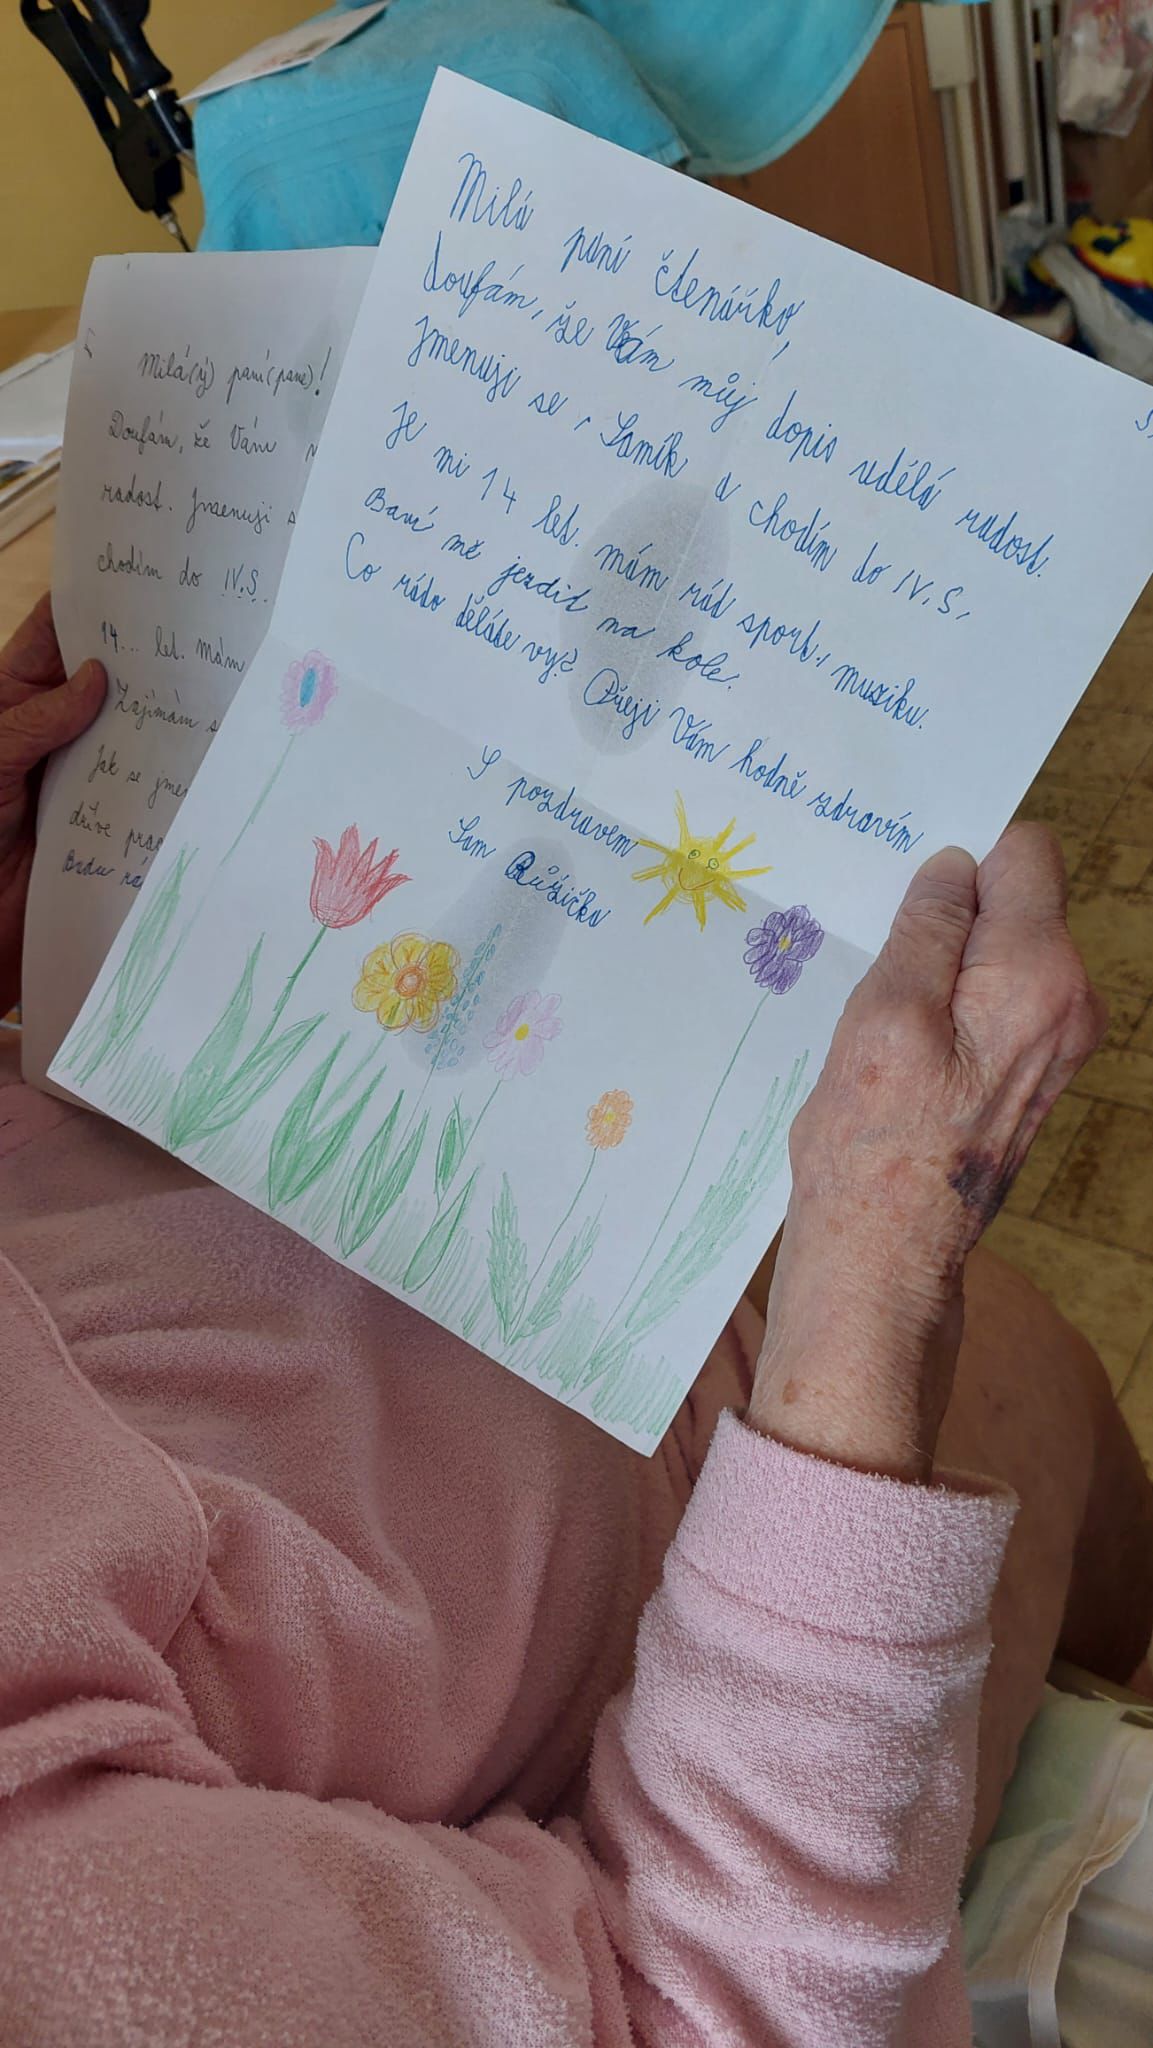 Milá paní čtenářko,
doufám, že Vám můj dopis udělá radost.
Jmenuji se, Samík a chodím do IV.S,
je mi 14 let. mám rád sport., muziku.
Baví mě jezdit na kole.
Co rádo děláte vy? Přeji Vám hodně zdravím
S pozdravem
Sam Růžička
Milá(ý) paní(pane)!
Doufám, že Vám
radost. Jmenuji
chodím do IV.S.
14... let. Mám
Zajímám
Jak se
dříve
Budu